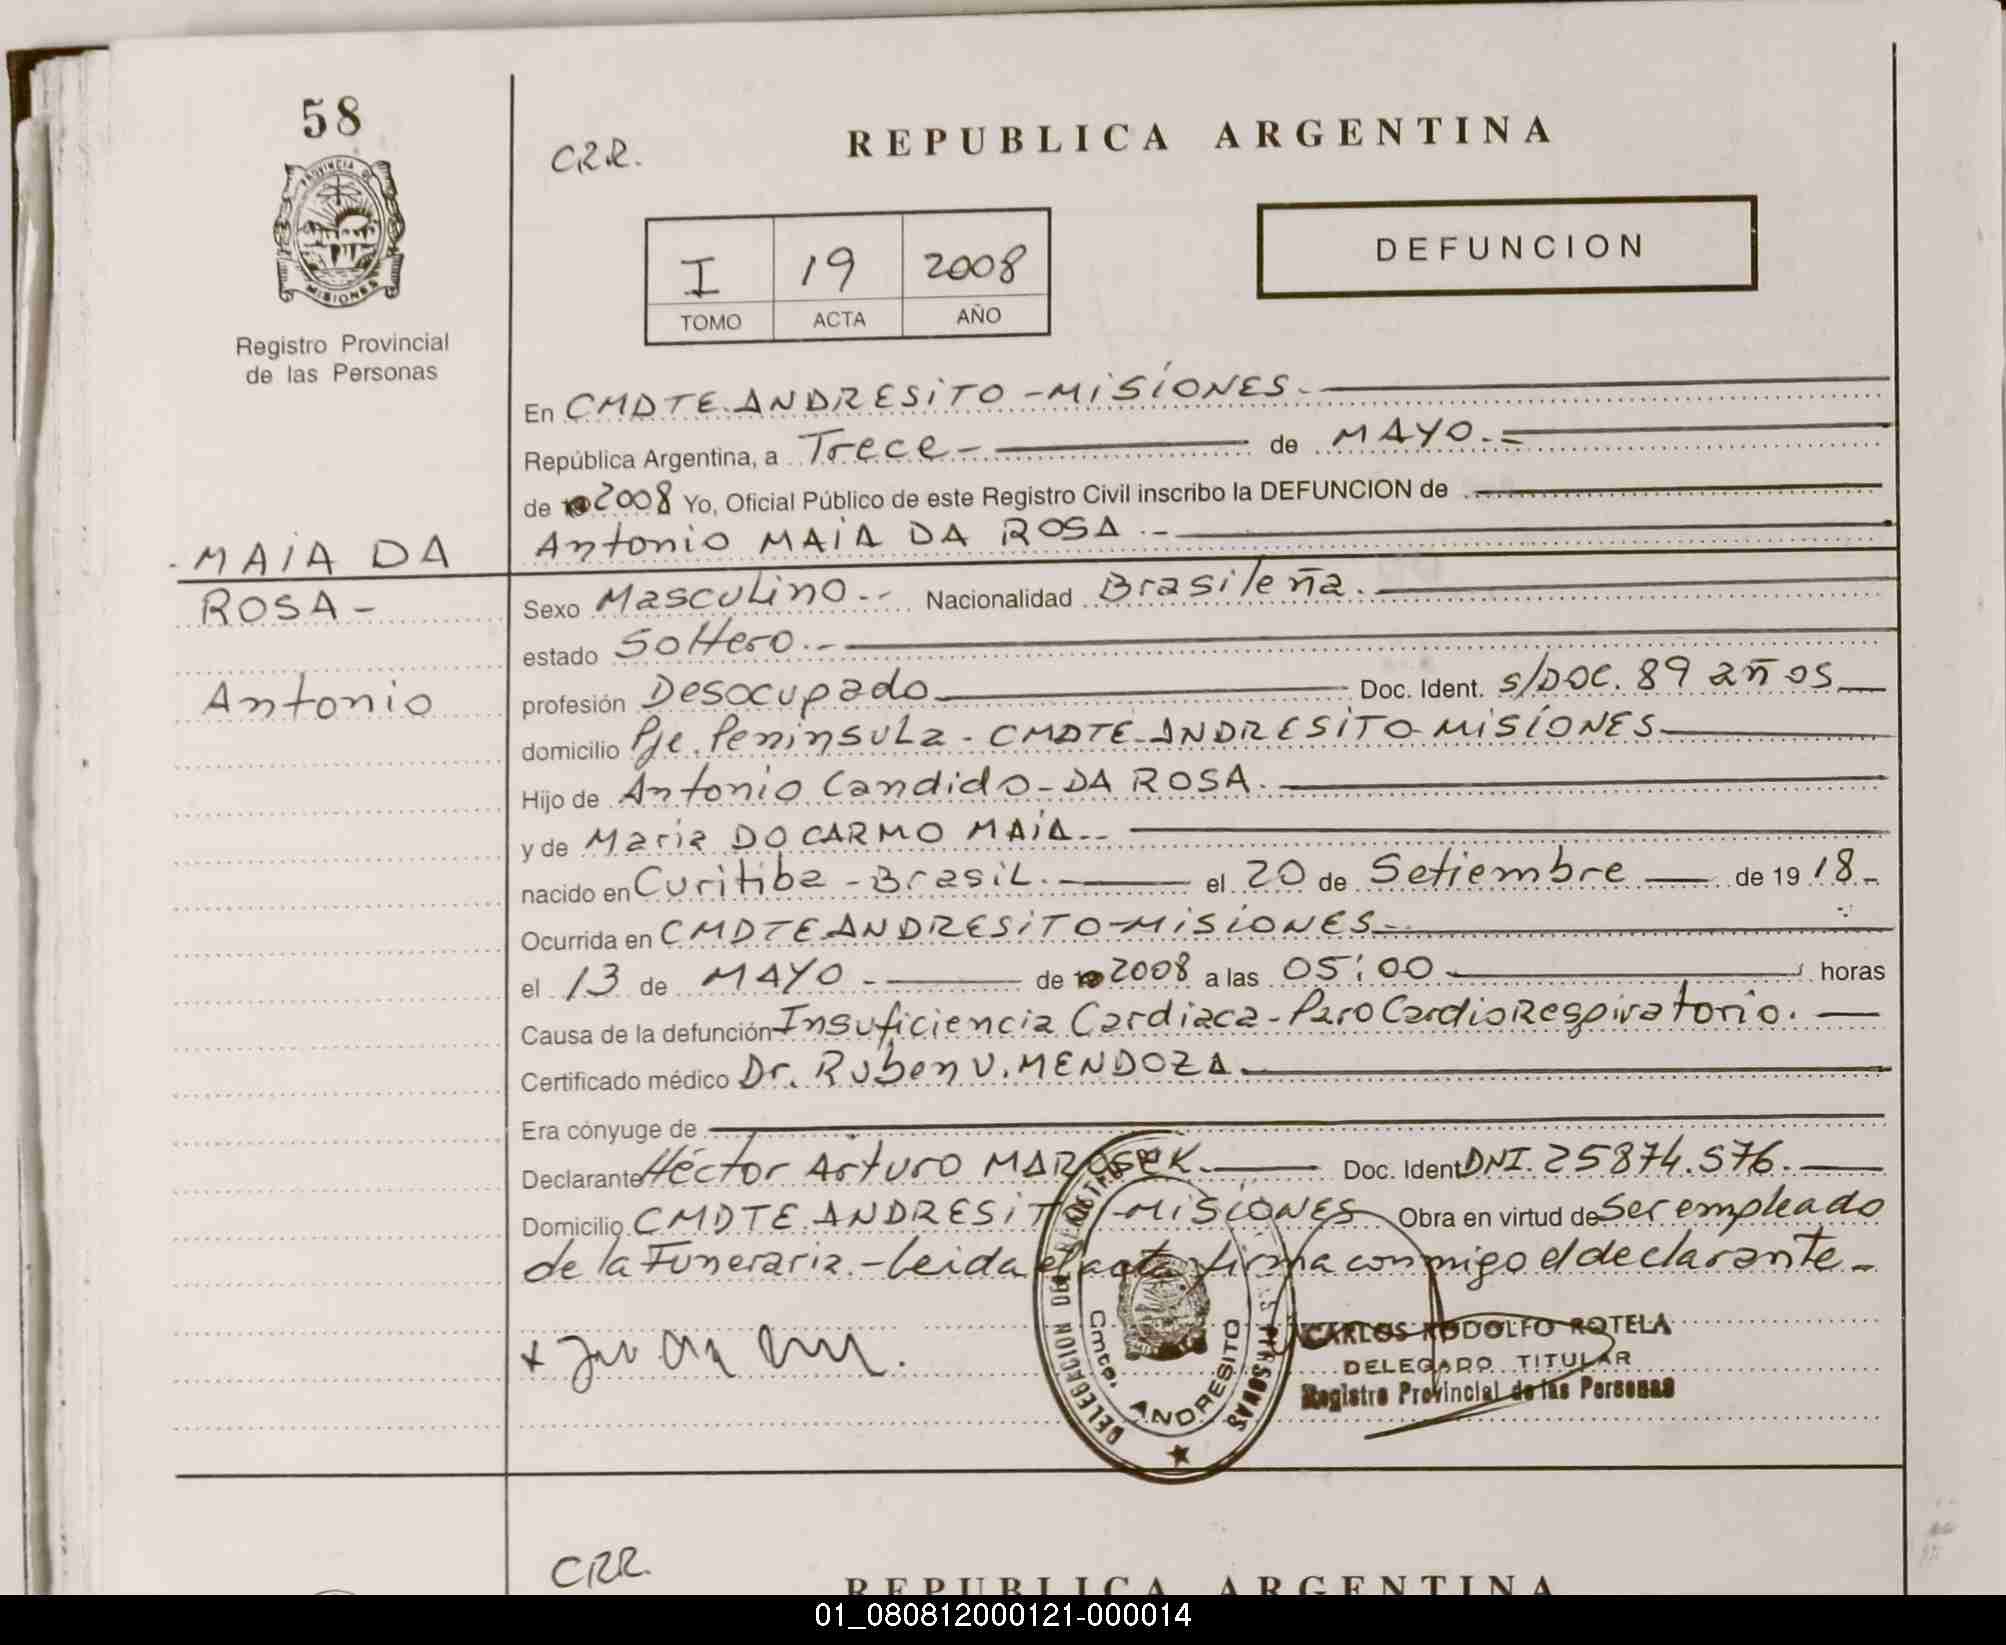 58
PROVINCIA DE
MISIONES
Registro Provincial
de las Personas
CRR.
REPUBLICA ARGENTINA
I 19 2008
TOMO ACTA AÑO
DEFUNCION
En CMDTE. ANDRESITO - MISIONES.
República Argentina, a Trece - de MAYO. -
de 2008 Yo, Oficial Público de este Registro Civil inscribo la DEFUNCION de
Antonio MAIA DA ROSA . -
- MAIA DA
ROSA -
Antonio
Sexo Masculino. - Nacionalidad Brasileña.
estado Soltero. -
profesión Desocupado Doc. Ident. s/DOC. 89 años
domicilio Pje. Peninsula - CMDTE. ANDRESITO - MISIONES
Hijo de Antonio Candido - DA ROSA.
y de Maria DO CARMO MAIA. -
nacido en Curitiba - Brasil. el 20 de Setiembre de 19 18. -
Ocurrida en CMDTE ANDRESITO - MISIONES
el 13 de MAYO - de 2008 a las 05:00 horas
Causa de la defunción Insuficiencia Cardiaca - Paro CardioRespiratorio.
Certificado médico Dr. Ruben V. MENDOZA
Era cónyuge de
Declarante Héctor Arturo MAROSEK. Doc. Ident DNI. 25874.576.
Domicilio CMDTE. ANDRESITO - MISIONES Obra en virtud de Ser empleado
de la Funeraria. - Leida el acta firma conmigo el declarante -
DELEGACION DEL REGISTRO PERSONAS
Cmte. ANDRESITO
CARLOS RODOLFO ROTELA
DELEGADO TITULAR
Registro Provincial de las Personas
CRR.
REPUBLICA ARGENTINA
01_080812000121-000014